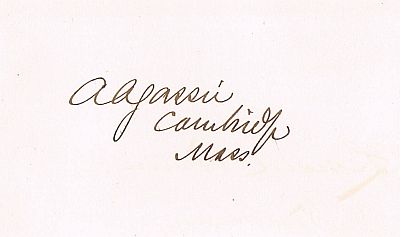 A Agassiz
Cambridge
Mass.